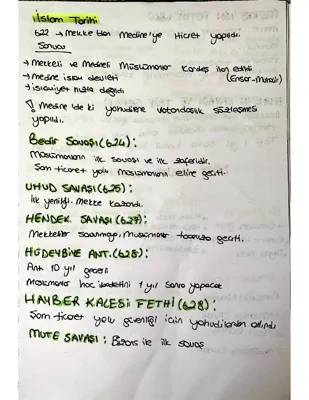 İslam Tarihi
622 → Mekke'den Medine'ye Hicret yapıldı.
Sonucu
→ Mekkeli ve Medineli Müslümanlar Kardeş ilan edildi
→ Medine islam devleti (Ensar-Muhacir)
→ islamiyet hızla değildi
! Medine'de ki yahudilerle Vatandaşlık sözleşmesi
yapıldı.
Bedir Savaşı (624):
Müslümanların ilk savaşı ve ilk zaferidir.
Şam ticaret yolu müslümanların eline geçti.
UHUD SAVAŞI (625):
ilk yenilgi. Mekke kazandı.
HENDEK SAVAŞI (627):
Mekkeliler savunmaya, Müslümanlar taarruza geçti.
HUDEYBİYE ANT. (628):
Ant. 10 yıl geçerli
Müslümanlar hac ibadetini 1 yıl sonra yapacak
HAYBER KALESİ FETHİ (628):
Şam ticaret yolu güvenliği için yahudilerden alındı
MUTE SAVAŞI : Bizans ile ilk savaş